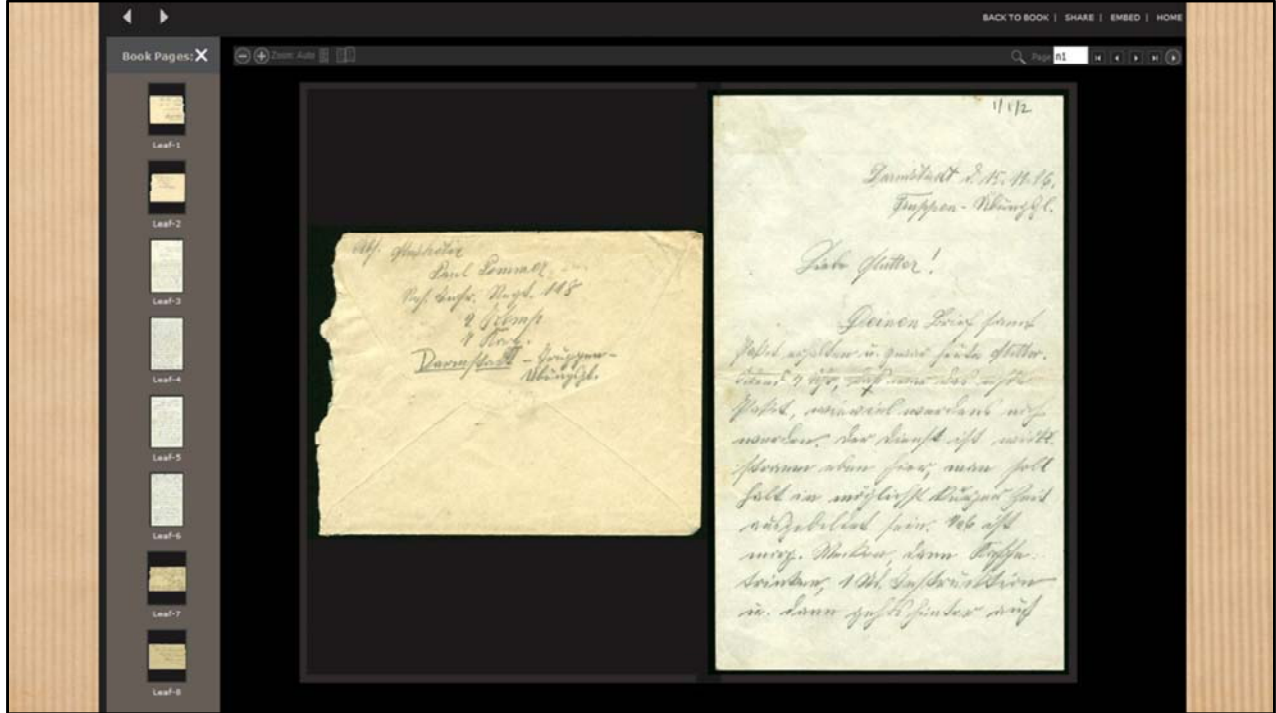 BACK TO BOOK | SHARE | EMBED | HOME
Book Pages: X
Zoom: Auto
Page n1
Leaf-1
Leaf-2
Leaf-3
Leaf-4
Leaf-5
Leaf-6
Leaf-7
Leaf-8
Abs. Musketier
Paul
Res. Inft. Regt. 118
Komp
Korp.
Darmstadt - Truppen-
Übungspl.
1/1/2
Darmstadt d. 15. 11. 16.
Truppen-Übungspl.
Liebe Mutter!
Deinen Brief samt
Paket erhalten u. zwar heute
Uhr, das war das erste
Paket, wieviel werdens noch
werden. Der Dienst ist
stramm eben hier, man soll
halt in möglichst kurzer Zeit
ausgebildet sein. ist
morg. Wecken, dann Kaffe
trinken, 1 Instruktion
u. dann gehts hinter auf